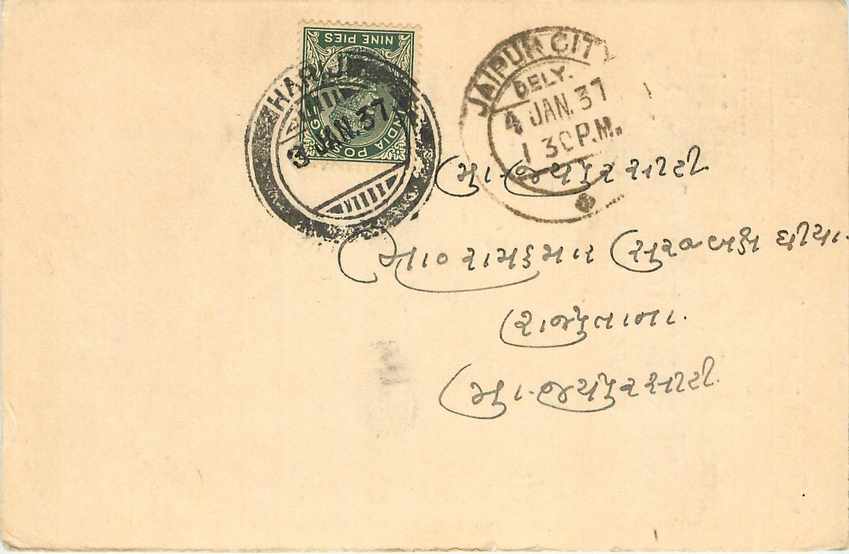 NINE PIES
INDIA POSTAGE
3 JAN.37
JAIPUR CITY
DELY.
4 JAN.37
1 30P.M.
મુ. જયપુર સીટી
રામકુમાર સુરજબક્ષ ઘીયા.
રાજપુતાના.
મુ. જયપુર સીટી